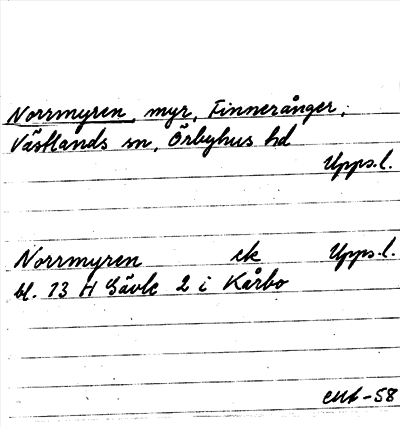 Norrmyren, myr, Finnerånger,
Västlands sn, Örbyhus hd
Upps.l.
Norrmyren ek Upps.l.
bl. 13 H Gävle 2 i Kårbo